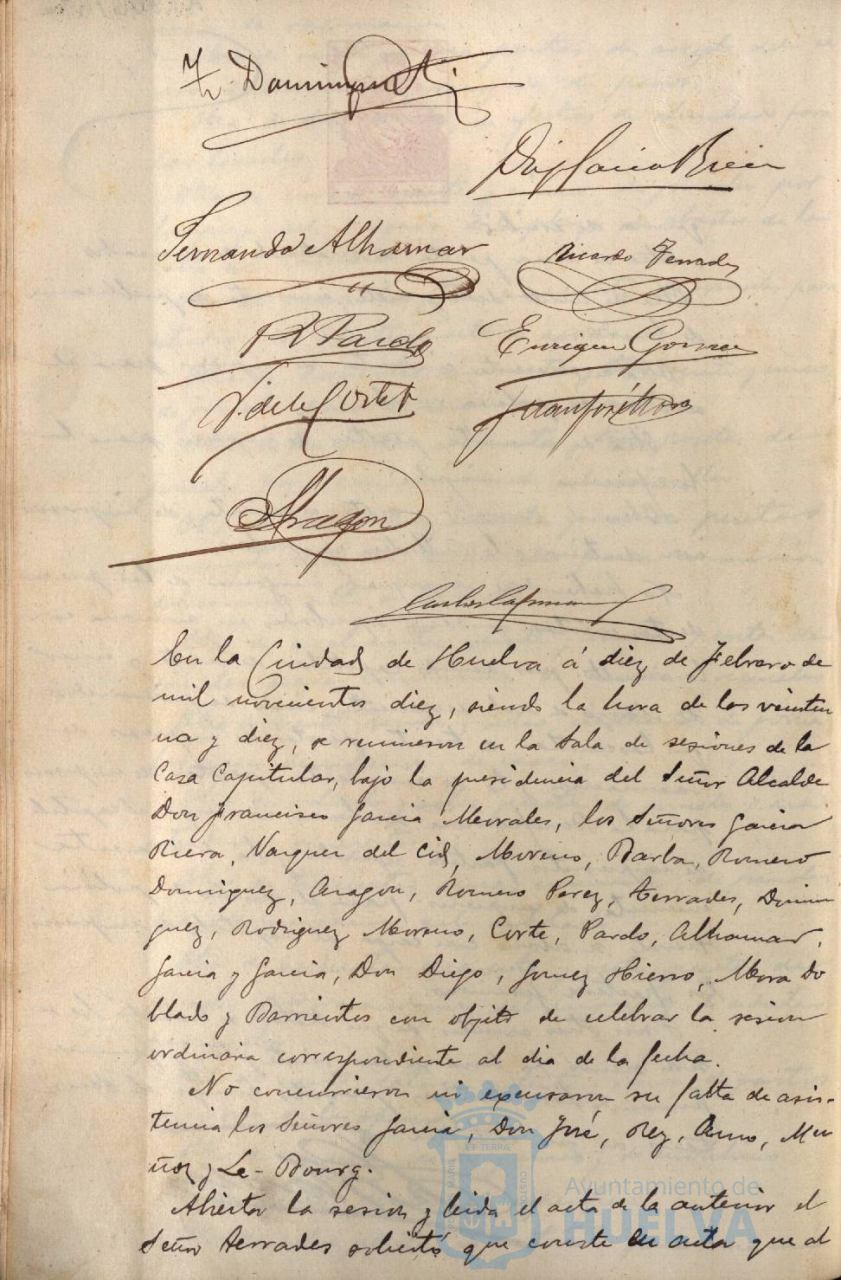 F. Dominguez
Fernando Alhamar
Ricardo Terrades
R. Pardo
Enrique Gomez
J. de la Corte
Juan José Mora
Aragon
En la Ciudad de Huelva á diez de Febrero de
mil novecientos diez, siendo la hora de las veintiu
na y diez, se reunieron en la Sala de sesiones de la
Casa Capitular, bajo la presidencia del Señor Alcalde
Don Francisco Garcia Morales, los Señores Garcia
Riera, Vazquez del Cid, Moreno, Barba, Romero
Dominguez, Aragon, Romero Perez, Terrades, Domin
guez, Rodriguez Moreno, Corte, Pardo, Alhamar,
Garcia y Garcia, Don Diego, Gomez Hierro, Mora Do
blado y Barrientos con objeto de celebrar la sesion
ordinaria correspondiente al dia de la fecha.
No concurrieron ni excusaron su falta de asis-
tencia los Señores Garcia, Don José, Rey, Mu
ñoz y Le-Bourg.
Abierta la sesion y leida el acta de la anterior el
Señor Terrades solicitó que conste en acta que al
Ayuntamiento de
HUELVA